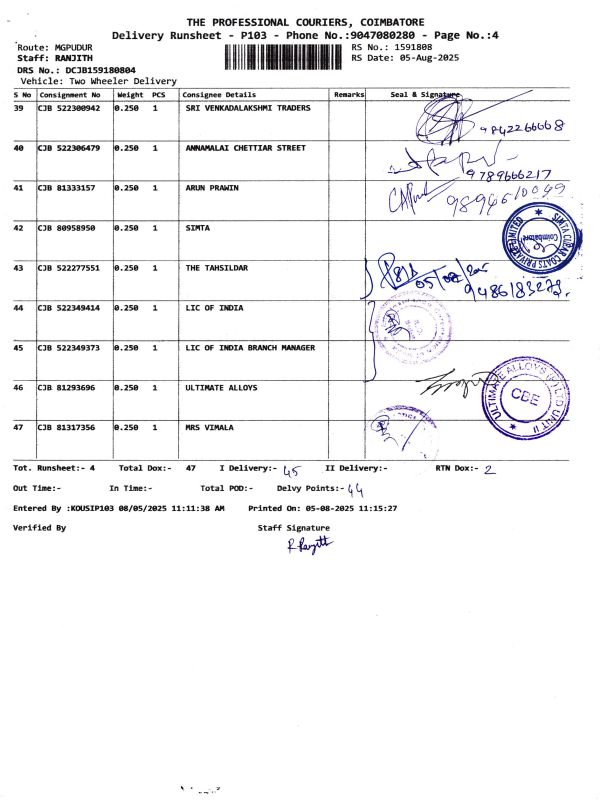 THE PROFESSIONAL COURIERS, COIMBATORE
Delivery Runsheet - P103 - Phone No.:9047080280 - Page No.:4
Route: MGPUDUR RS No.: 1591808
Staff: RANJITH RS Date: 05-Aug-2025
DRS No.: DCJB159180804
Vehicle: Two Wheeler Delivery
S No Consignment No Weight PCS Consignee Details Remarks Seal & Signature
39 CJB 522300942 0.250 1 SRI VENKADALAKSHMI TRADERS
9842266668
40 CJB 522306479 0.250 1 ANNAMALAI CHETTIAR STREET
9789666217
41 CJB 81333157 0.250 1 ARUN PRAWIN
9894610049
42 CJB 80958950 0.250 1 SIMTA
SIMTA CLEAR COATS PRIVATE LIMITED
Coimbatore
43 CJB 522277551 0.250 1 THE TAHSILDAR
05/08/2025
9486183272
44 CJB 522349414 0.250 1 LIC OF INDIA
45 CJB 522349373 0.250 1 LIC OF INDIA BRANCH MANAGER
46 CJB 81293696 0.250 1 ULTIMATE ALLOYS
ULTIMATE ALLOYS (P) LTD UNIT II
CBE
47 CJB 81317356 0.250 1 MRS VIMALA
Tot. Runsheet:- 4 Total Dox:- 47 I Delivery:- 45 II Delivery:- RTN Dox:- 2
Out Time:- In Time:- Total POD:- Delvy Points:- 44
Entered By :KOUSIP103 08/05/2025 11:11:38 AM Printed On: 05-08-2025 11:15:27
Verified By Staff Signature